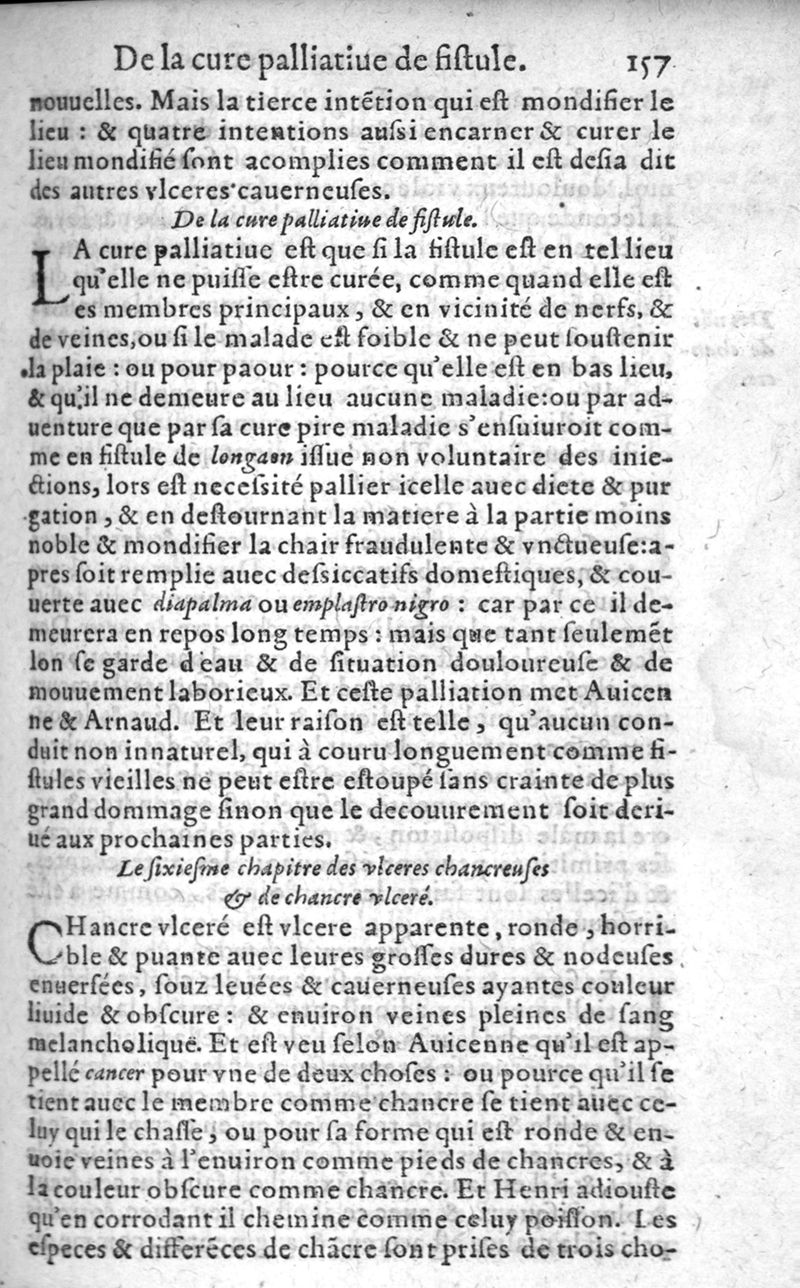 De la cure palliatiue de fiſtule. 157
nouuelles. Mais la tierce intẽtion qui eſt mondifier le
lieu : & quatre intentions auſsi encarner & curer le
lieu mondifié ſont acomplies comment il eſt deſia dit
des autres vlceres cauerneuſes.
De la cure palliatiue de fiſtule.
LA cure palliatiue eſt que ſi la fiſtule eſt en tel lieu
qu'elle ne puiſſe eſtre curée, comme quand elle eſt
es membres principaux, & en vicinité de nerfs, &
de veines, ou ſi le malade eſt foible & ne peut ſouſtenir
la plaie : ou pour paour : pource qu'elle eſt en bas lieu,
& qu'il ne demeure au lieu aucune maladie:ou par ad-
uenture que par ſa cure pire maladie s'enſuiuroit com-
me en fiſtule de longaon iſſue non voluntaire des inie-
ctions, lors eſt neceſsité pallier icelle auec diete & pur
gation, & en deſtournant la matiere à la partie moins
noble & mondifier la chair fraudulente & vnctueuſe:a-
pres ſoit remplie auec deſsiccatifs domeſtiques, & cou-
uerte auec diapalma ou emplaſtro nigro : car par ce il de-
meurera en repos long temps : mais que tant ſeulemẽt
lon ſe garde d'eau & de ſituation douloureuſe & de
mouuement laborieux. Et ceſte palliation met Auicen
ne & Arnaud. Et leur raiſon eſt telle, qu'aucun con-
duit non innaturel, qui à couru longuement comme fi-
ſtules vieilles ne peut eſtre eſtoupé ſans crainte de plus
grand dommage ſinon que le decouurement ſoit deri-
ué aux prochaines parties.
Le ſixieſme chapitre des vlceres chancreuſes
& de chancre vlceré.
CHancre vlceré eſt vlcere apparente, ronde, horri-
ble & puante auec leures groſſes dures & nodeuſes
enuerſées, ſouz leuées & cauerneuſes ayantes couleur
liuide & obſcure : & enuiron veines pleines de ſang
melancholique. Et eſt veu ſelon Auicenne qu'il eſt ap-
pellé cancer pour vne de deux choſes : ou pource qu'il ſe
tient auec le membre comme chancre ſe tient auec ce-
luy qui le chaſſe, ou pour ſa forme qui eſt ronde & en-
uoie veines à l'enuiron comme pieds de chancres, & à
la couleur obſcure comme chancre. Et Henri adiouſte
qu'en corrodant il chemine comme celuy poiſſon. Les
eſpeces & differẽces de chãcre ſont priſes de trois cho-